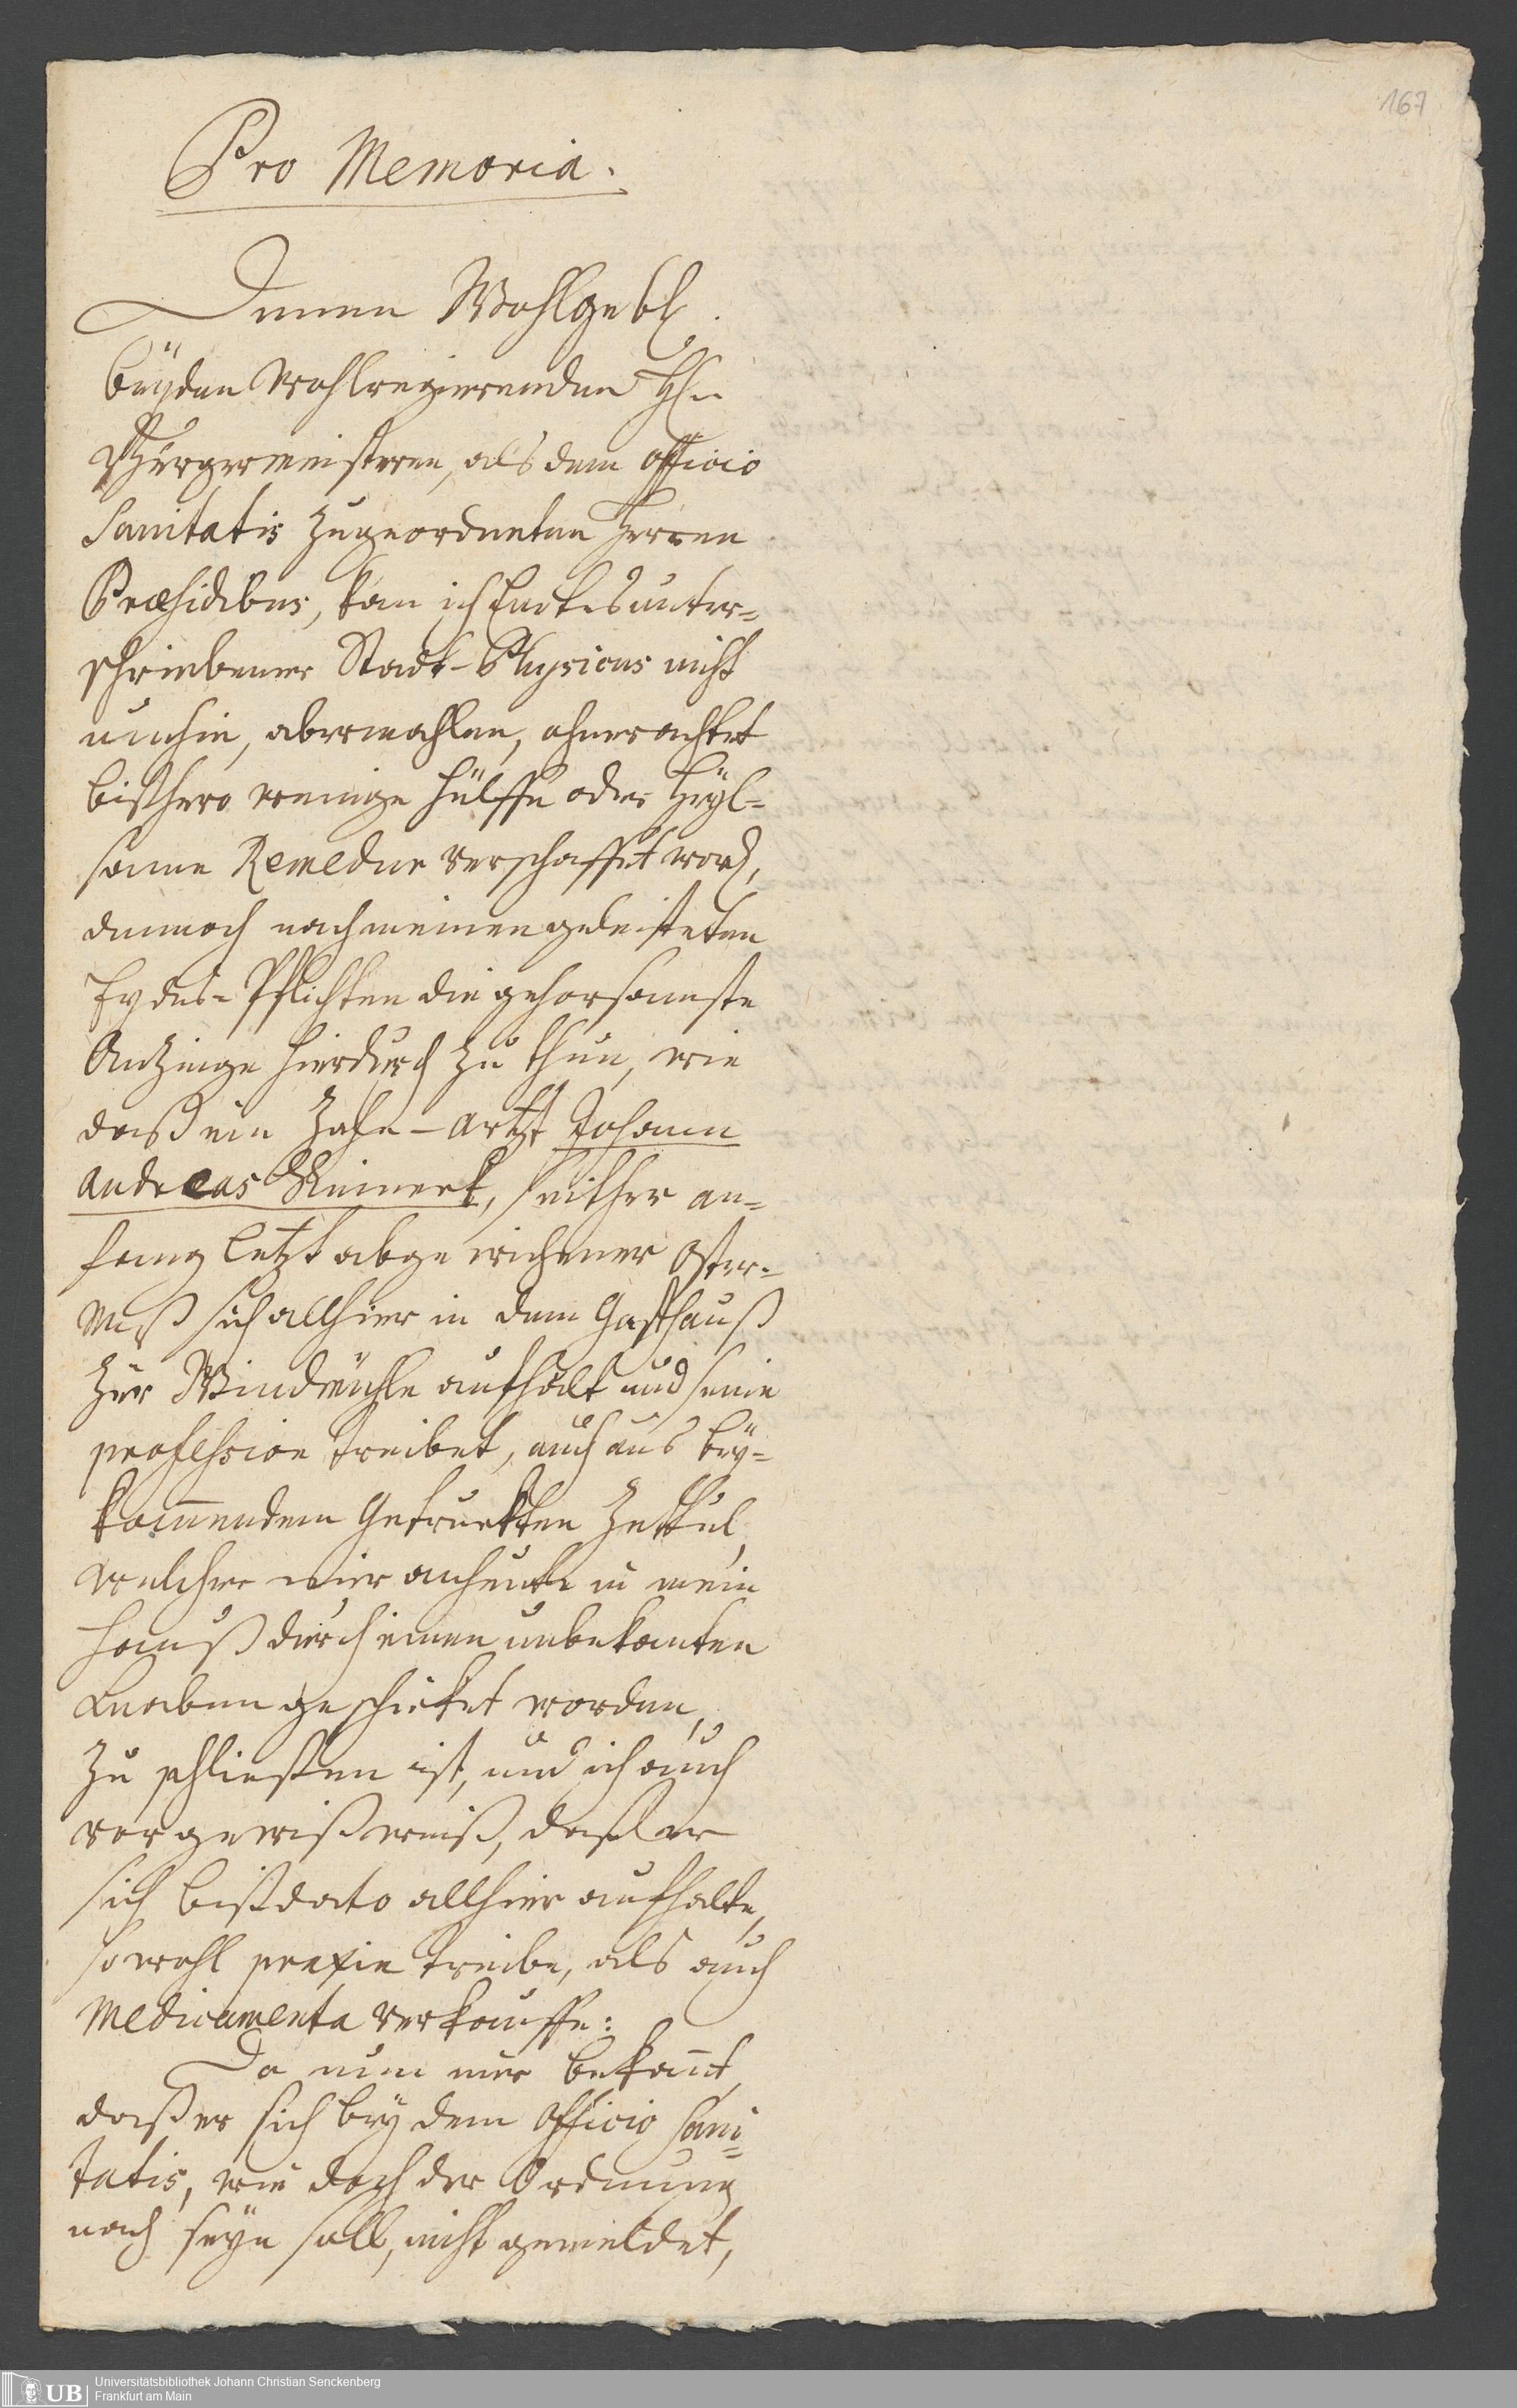 167
Pro Memoria.
Denen Wohlgebl.
beyden Wohlregierenden Hhn
Bürgermeisteren, als dem Officio
Sanitatis zugeordneten Herren
Præsidibus, kan ich Endes unter-
schriebener Stadt-Physicus nicht
umhin, abermahlen, ohnerachtet
bißhero wenige hülffe oder heyl-
same Remedur verschaffet word,
dennoch nach meinen geleisteten
Eydes-Pflichten die gehorsamste
Anzeige hierdurch zu thun, wie
daß ein Zahn-artzt Johann
Andreas Reinert, seither an-
fang letzt abgewichener Oster-
Meß sich allhier in dem Gasthauß
zur Windmühle aufhält und seine
profession treibet, auch aus bey-
kom̅endem Getruckten Zettul,
welcher mir anheute in mein
Hauß durch einen unbekanten
Knaben geschicket worden,
zu schliessen ist, und ich auch
vor gewiß weiß, daß er
sich biß dato allhier aufhalte,
sowohl praxin treibe, als auch
Medicamenta verkauffe:
Da nun mir bekan̅t,
daß er sich bey dem Officio Sani-
tatis, wie doch der Ordnung
nach seyn soll, nicht gemeldet,
UB
Universitätsbibliothek Johann Christian Senckenberg
Frankfurt am Main